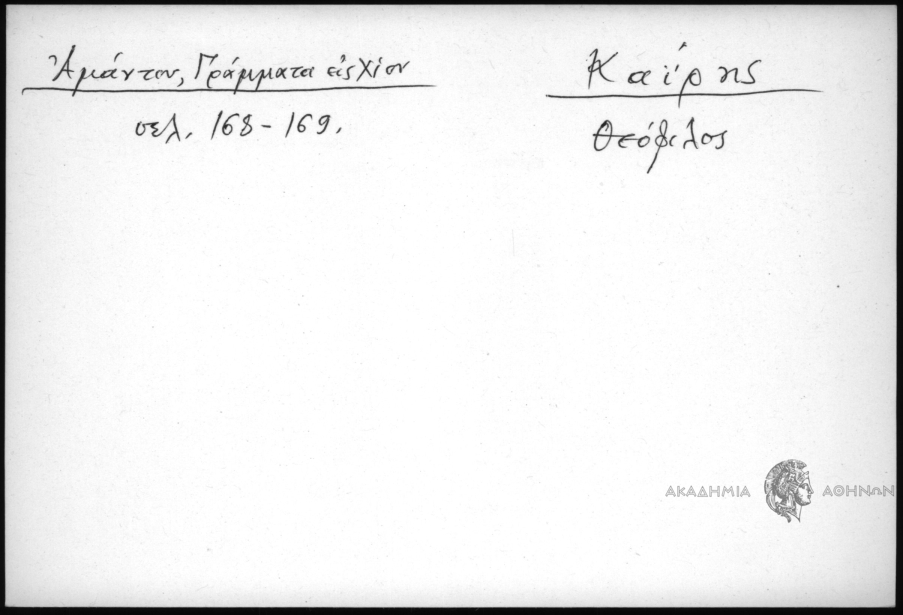 Ἀμάντου, Γράμματα εἰς Χίον
σελ. 168-169.
Καΐρης
Θεόφιλος
ΑΚΑΔΗΜΙΑ ΑΘΗΝΩΝ